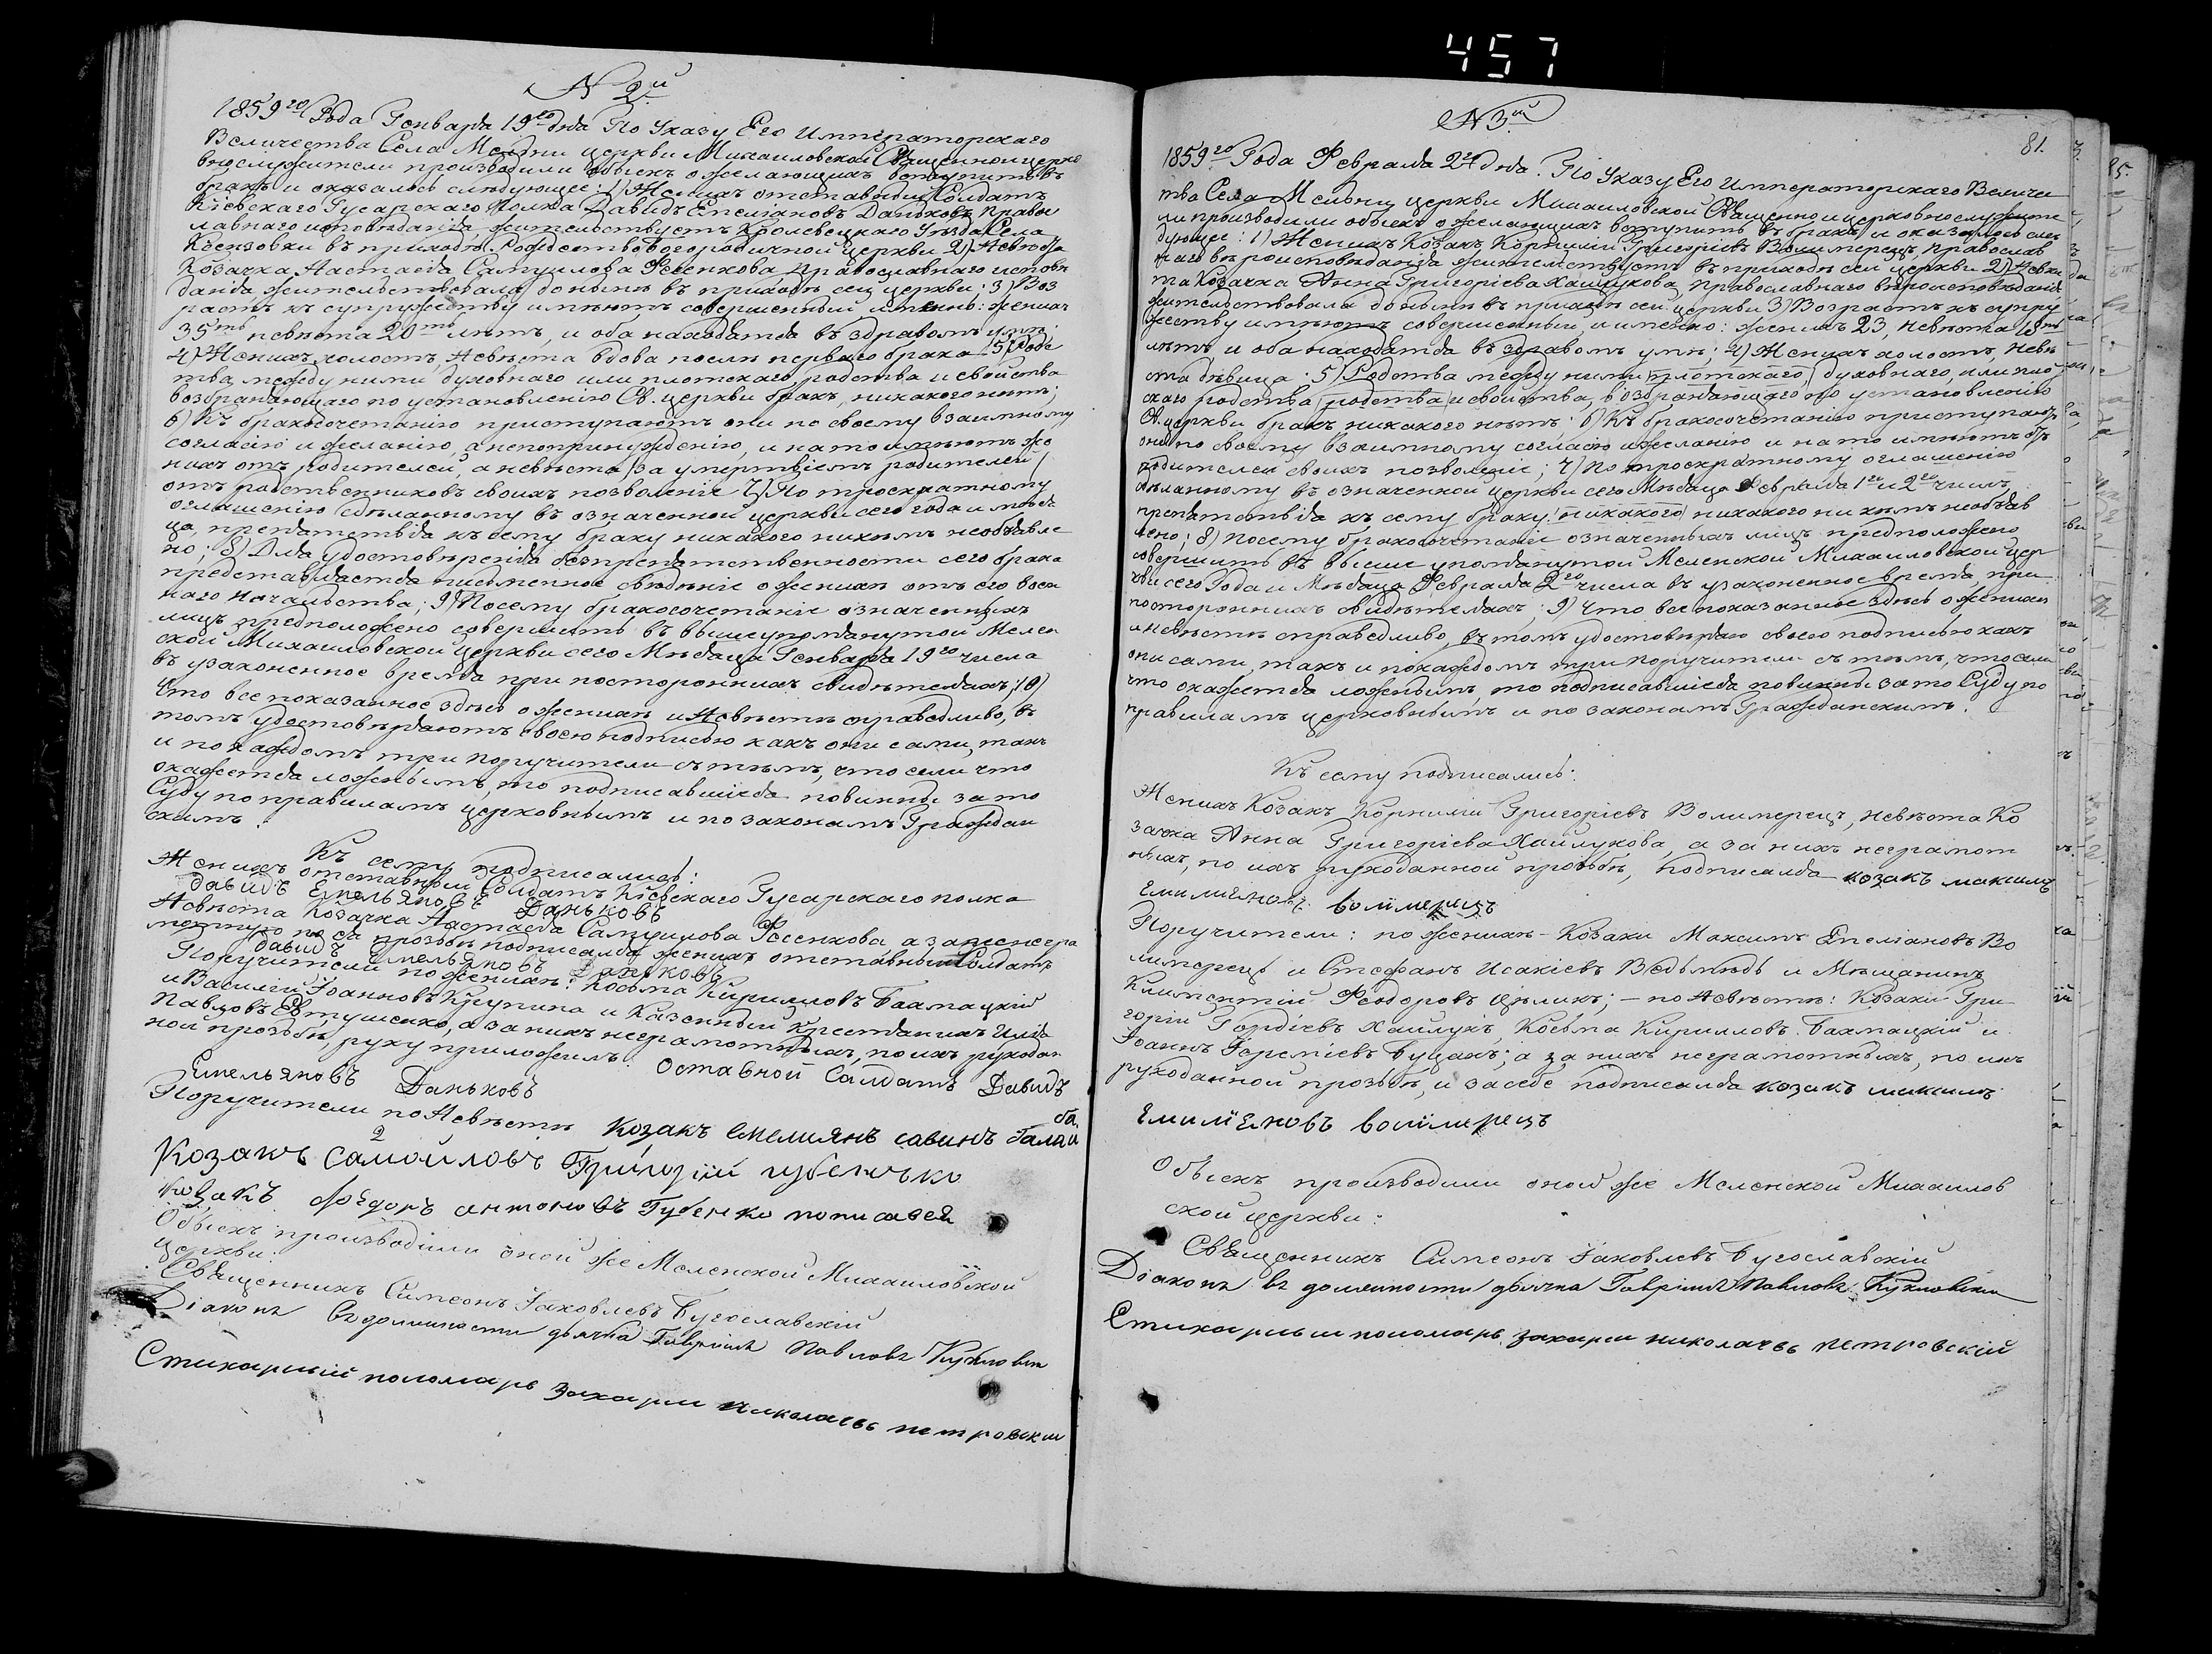 457
N 2й
1859го Года Генваря 19го дня По Указу Его Императорскаго
Величества Села Мельни церкви Михаиловской Священноцерко
внослужители производили обыскъ о желающихъ вступить въ
бракъ и оказалось слѣдующее: 1) Женихъ отставный Солдатъ
Кіевскаго Гусарскаго полка Давидъ Емеліановъ Даньковъ, Правос
лавнаго исповѣданія жительствуетъ Кролевецкаго Уѣзда Села
въ приходѣ Рождество-богородичной церкви 2) Невѣста
Козачка Настасія Самуилова Фесенкова, православнаго исповѣ
данія жительствовала донынѣ въ приходѣ сей церкви; 3) Воз
растъ къ супружеству имѣютъ совершенный именно: женихъ
35ть невѣста 20ть лѣтъ, и оба находятся въ здравомъ умѣ;
4) Женихъ холостъ, Невѣста вдова послѣ перваго брака 5) Родс
тва, между ними духовнаго или плотскаго, родства и свойства
возбраняющаго по установленію Св. церкви бракъ, никакого нѣтъ;
6) Къ бракосочетанію приступаютъ они по своему взаимному
согласію и желанію, а непопринужденію, и на то имѣютъ же
нихъ отъ родителей, а невѣста, за умертвіемъ родителей,
отъ родственниковъ своихъ позволеніе 7) По троекратному
оглашенію сдѣланному въ означенной церкви сего года и мѣся
ца, препятствія къ сему браку никакого никѣмъ необъявле
но; 8) Для удостовѣренія безпрепятственности сего брака
представляется письменное свѣдѣніе о женихѣ отъ его воен
наго Начальства; 9) Посему бракосочетаніе означенныхъ
лицъ предположено совершить въ вышеупомянутой Мелен
ской Михаиловской церкви сего Мѣсяца Генваря 19го числа
въ узаконенное время при постороннихъ свидѣтеляхъ; 10)
Что все показанное здѣсь о женихѣ и Невѣстѣ справедливо, въ
томъ удостовѣряютъ своею подписью какъ они сами, такъ
и по каждомъ три поручители съ тѣмъ, что если что
окажется ложнымъ, то подписавшіеся повинны за то
Суду по правиламъ церковнымъ и по законамъ Граждан
скимъ.
Къ сему подписались:
Женихъ отставный Солдатъ Кіевскаго Гусарскаго полка
Давидъ Емельяновъ Даньковъ
Невѣста Козачка Настасія Самуилова Фесенкова, а за неегра
мотную по ея прозьбѣ подписался женихъ отставный Солдатъ
Давидъ Емельяновъ Даньковъ
Поручители по женихѣ: Косьма Кирилловъ Бахмацкій
и Василій Іоанновъ Крупина и Казенный Крестьянинъ Илія
Павловъ Евтушенко, а за нихъ неграмотныхъ, по ихъ рукодан
ной прозьбѣ, руку приложилъ: Оставной Салдатъ Давидъ
Емельяновъ Даньковъ
Поручители по Невѣстѣ Козакъ Емелиянъ савинъ
Козакъ Самойловъ Григорій губенъко
козакъ Фѣдоръ антоновъ Губенко пописався
Обыскъ производили оной же Меленской Михаиловской
церкви:
Священникъ Симеонъ Іаковлевъ Бугославскій
Діаконъ въ должности дьячка Гавріилъ Павловъ
Стихарный поломарь захарии николаевъ петровскии
N 3й
81.
1859го Года Февраля 2го дня. По Указу Его Императорскаго Величес
тва Села Мельни церкви Михаиловской Священно и церковнослужите
ли производили обыскъ о желающихъ вступить въ бракъ и оказалось слѣ
дующее: 1) Женихъ Козакъ Корнилій Григоріевъ Волимерецъ, православ
наго вѣроисповѣданія жительствуетъ въ приходѣ сей церкви 2) Невѣс
та Козачка Анна Григоріева Хайлукова православнаго вѣроисповѣданія
жительствовала донынѣ въ приходѣ сей церкви 3) Возрастъ къ супру
жеству имѣютъ совершенный, и именно: женихъ 23, невѣста
лѣтъ и оба находятся въ здравомъ умѣ; 4) Женихъ холостъ, невѣ
ста дѣвица. 5) Родства между ними плотскаго, духовнаго, или плот
скаго родства родства и свойства, возбраняющаго по установленію
Св. церкви бракъ никакого нѣтъ: 6) Къ бракосочетанію приступаютъ
они по своему взаимному согласію и желанію и на то имѣютъ отъ
родителей своихъ позволеніе; 7) По троекратному оглашенію
сдѣланному въ означенной церкви сего Мѣсяца Февраля 1го и 2го чиселъ,
препятствія къ сему браку никакого никакого никѣмъ необъяв
лено; 8) Посему бракосочетаніе означенныхъ лицъ предположено
совершить въ выше упомянутой Меленской Михаиловской цер
кви сего Года и Мѣсяца Февраля 2го числа въ узаконенное время, при
постороннихъ свидѣтеляхъ; 9) Что все показанное здѣсь о женихѣ
и невѣстѣ справедливо, въ томъ удостовѣряю своею подписью какъ
они сами, такъ и по каждомъ три поручители съ тѣмъ, что если
что окажется ложнымъ, то подписавшіеся повинны за то Суду по
правиламъ церковнымъ и по законамъ Гражданскимъ.
Къ сему подписались:
Женихъ Козакъ Корнилій Григоріевъ Волимерецъ, невѣста Ко
зачка Анна Григоріева Хайлукова, а за нихъ неграмот
ныхъ, по ихъ рукоданной прозьбѣ, подписался козакъ максимъ
Емилиєновъ волімерецъ
Поручители: по женихѣ - Козаки Максимъ Емеліановъ Во
лимерецъ и Стефанъ Исакіевъ Ведьмѣдь и Мѣщанинъ
Климентій Феодоровъ Цѣликъ; - по Невѣстѣ: Козаки Гри
горій Гордіевъ Хайлукъ, Косьма Кирилловъ Бахмацкій и
Іоаннъ Іереміевъ Буцакъ; а за нихъ неграмотныхъ, по ихъ
рукоданной прозьбѣ, и за себе подписался козакъ максимъ
Емилієновъ волімерецъ
Обыскъ производили оной же Меленской Михаилов
ской церкви:
Священникъ Симеонъ Іаковлевъ Бугославскій
Діаконъ въ должности дьячка Гавріилъ Павловъ
Стихарный поломарь захарии николаевъ петровскій